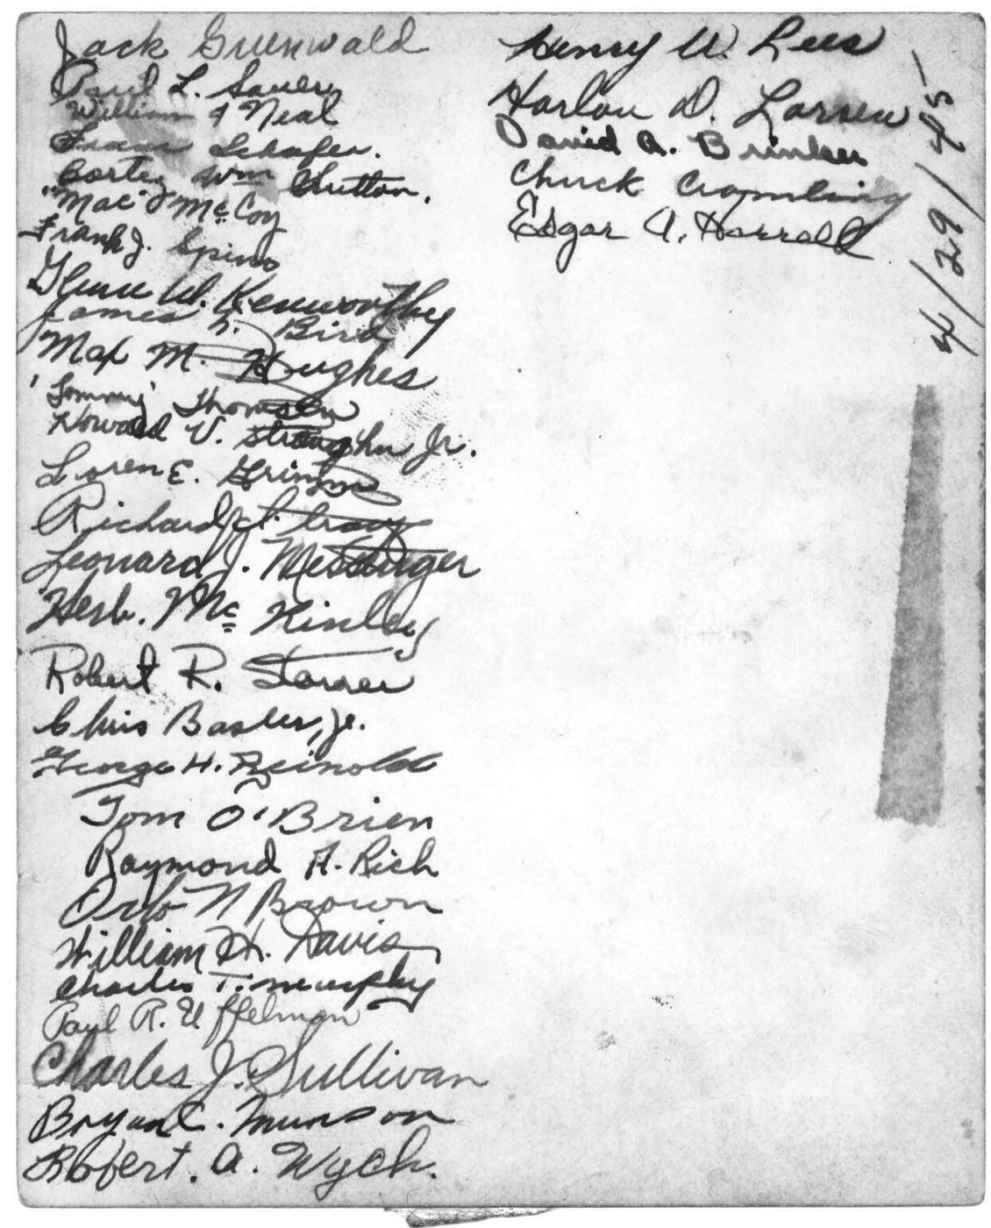 Jack Gruenwald
Paul L. Sauery
William J Neal
Schafer.
Wm Chutton.
"Mac" McCoy
Frank J. Spino
Glenn W. Kenworthy
James Bird
Max M. Hughes
'Tommy' Thomsen
Howard V. Straughn Jr.
Loren E. Grimm
Richard Tracy
Leonard J. Messinger
Herb. Mc Kinley
Robert R. Starrer
Chris Basler, Jr.
George H. Reinoldt
Tom O'Brien
Raymond A. Rich
N Brown
William H. Davis
Charles T. Murphy
Paul R. Uffelman
Charles J. Sullivan
Bryan C. Munson
Robert. A. Wych.
Henry W. Lees
Harlan D. Larsen
David A. Brinker
Chuck
Edgar A. Harrell
4/29/45